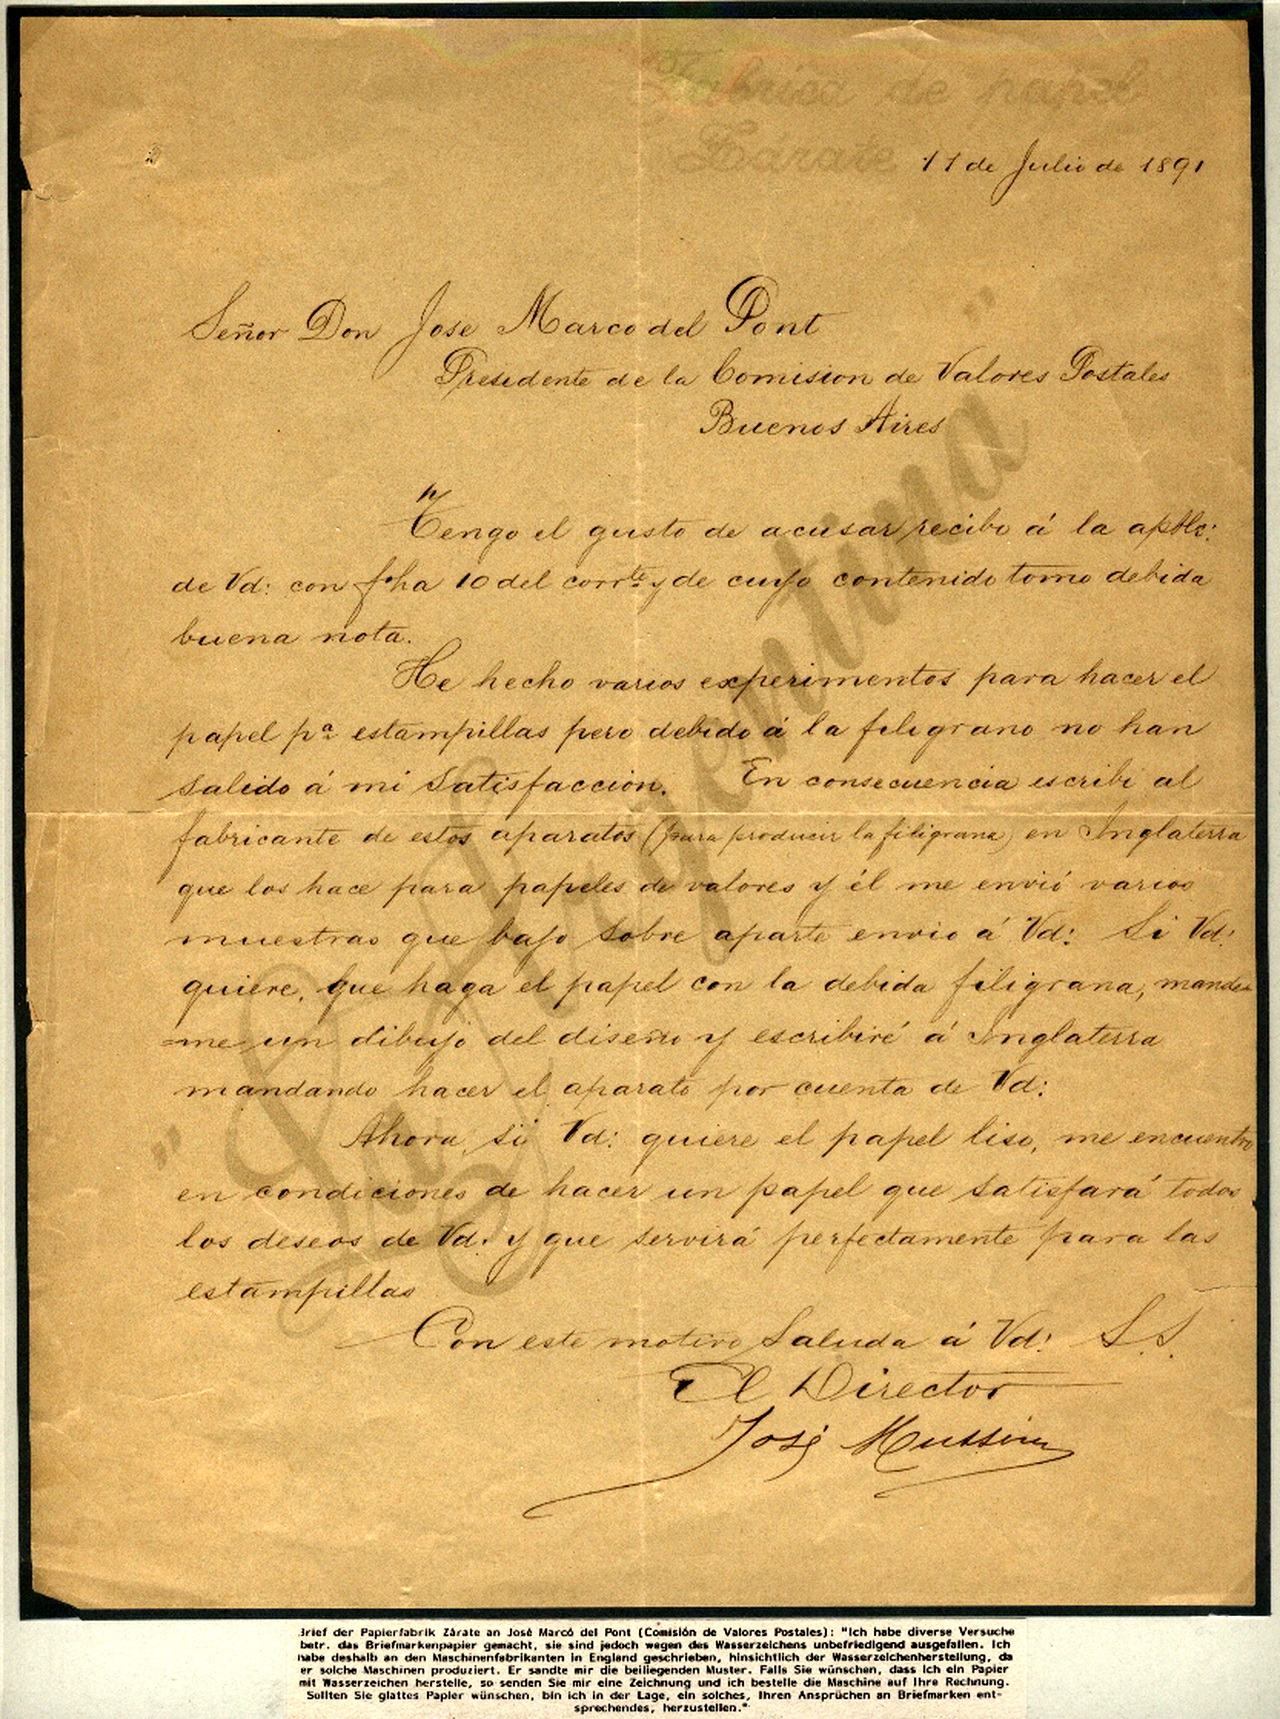 Fábrica de papel
Zárate 11 de Julio de 1891
Señor Don Jose Marco del Pont
Presidente de la Comision de Valores Postales
Buenos Aires
Tengo el gusto de acusar recibo á la apble:
de Vd: con fha 10 del corrte y de cuyo contenido tomo debida
buena nota.
He hecho varios experimentos para hacer el
papel pa estampillas pero debido á la filigrano no han
salido á mi satisfaccion. En consecuencia escribi al
fabricante de estos aparatos (para producir la filigrana) en Inglaterra
que los hace para papeles de valores y él me envió varios
muestras que bajo sobre aparte envio á Vd: Si Vd:
quiere, que haga el papel con la debida filigrana, mande=
=me un dibujo del diseño y escribiré á Inglaterra
mandando hacer el aparato por cuenta de Vd:
Ahora, si Vd: quiere el papel liso, me encuentro
en condiciones de hacer un papel que satisfará todos
los deseos de Vd. y que servirá perfectamente para las
estampillas
Con este motivo saluda á Vd: S.S.
El Director
José
"La Argentina"
Brief der Papierfabrik Zárate an José Marcó del Pont (Comisión de Valores Postales): "Ich habe diverse Versuche
betr. das Briefmarkenpapier gemacht, sie sind jedoch wegen des Wasserzeichens unbefriedigend ausgefallen. Ich
habe deshalb an den Maschinenfabrikanten in England geschrieben, hinsichtlich der Wasserzeichenherstellung, da
er solche Maschinen produziert. Er sandte mir die beiliegenden Muster. Falls Sie wünschen, dass ich ein Papier
mit Wasserzeichen herstelle, so senden Sie mir eine Zeichnung und ich bestelle die Maschine auf Ihre Rechnung.
Sollten Sie glattes Papier wünschen, bin ich in der Lage, ein solches, Ihren Ansprüchen an Briefmarken ent-
sprechendes, herzustellen."